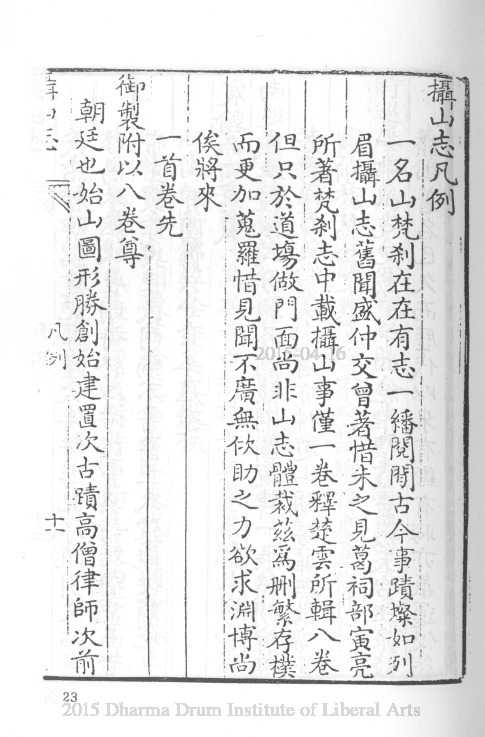 攝山志凡例
一名山梵刹在在有志一繙閱閒古今事蹟燦如列
眉攝山志舊聞盛仲交曾著惜未之見葛祠部寅亮
所著梵刹志中載攝山事僅一卷釋楚雲所輯八卷
但只於道塲做門面尚非山志體裁茲爲刪繁存樸
而更加蒐羅惜見聞不廣無佽助之力欲求淵博尚
俟將來
一首卷先
御製附以八卷尊
朝廷也始山圖形勝創始建置次古蹟高僧律師次前
凡例
十一
23
2015 Dharma Drum Institute of Liberal Arts